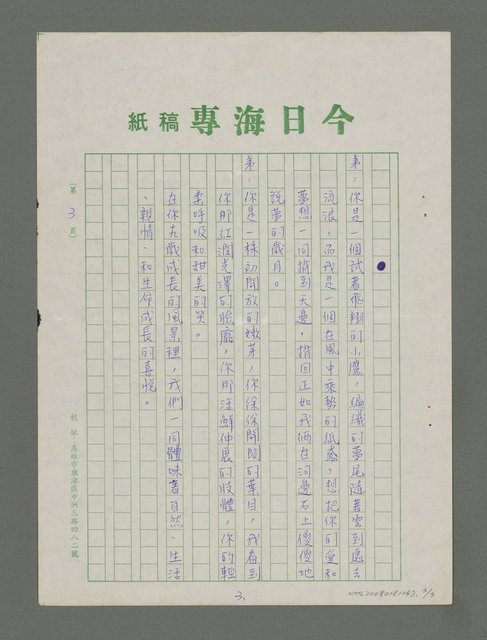 今日海專稿紙
弟：你是一個試著飛翔的小鷹，編織的夢尾隨著雲到處去
流浪，而我是一個在風中乘勢的紙鳶，想把你的愛和
夢想一同捎到天邊，捎回正如我倆在河邊石上傻傻地
說夢的歲月。
弟：你是一株初開放的嫩芽，你徐徐開啟的葉目，我看到
你那紅潤光澤的臉龐，你那活鮮伸展的肢體，你的輕
柔呼吸和甜美的笑。
在你九歲成長的風景裡，我們一同體味著自然、生活
、親情、和生命成長的喜悅。
（第3頁）
校址：高雄市旗津區中洲三路四八二號
3.